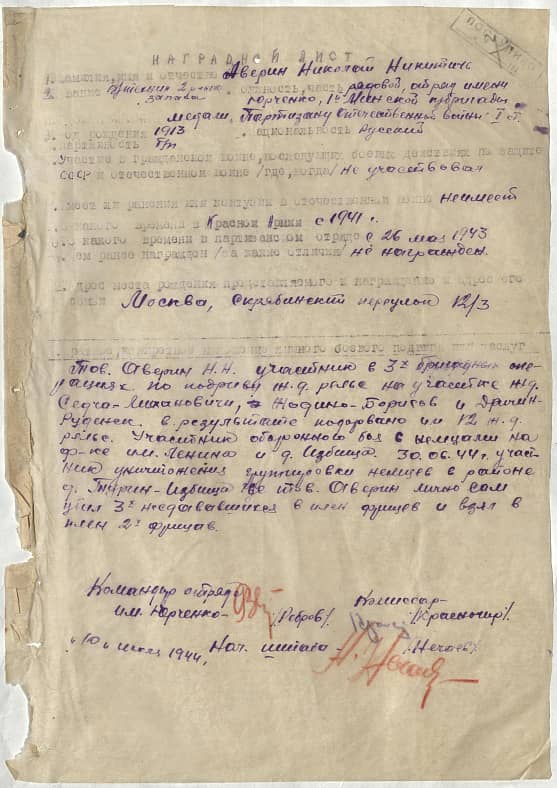 НАГРАДНОЙ ЛИСТ
Фамилия, имя и отчество Аверин Николай Никитич
звание техник 2 ранга запаса должность, часть рядовой, отряд имени
Юрченко, 1й Минской п/бригады
медали "Партизану Отечественной войны" I ст.
3. год рождения 1913 национальность Русский
партийность б/п
Участие в гражданской войне, последующих боевых действиях по защите
СССР и отечественной войне /где, когда/ не участвовал
имеет ли ранения или контузии в отечественной войне не имеет
с какого времени в Красной Армии с 1941 г.
с какого времени в партизанском отряде с 26 мая 1943
чем ранее награжден /за какие отличия/ не награжден.
адрес места рождения представляемого к награждению и адрес его
семьи Москва, Скрябинский переулок 12/3
личного боевого подвига или заслуг
Тов. Аверин Н.Н. участник в 3х бригадных опе-
рациях по подрыву ж.д. рельс на участке жд.
Седча-Михановичи, Жодино-Борисов и Дричин-
Руденск. в результате подорвано им 12 ж.д.
рельс. Участник оборонного боя с немцами на
ф-ке им. Ленина и д. Избища. 30.06.44г. участ-
ник уничтожения группировки немцев в районе
д. Избища где тов. Аверин лично сам
убил 3х несдававшихся в плен фрицев и взял в
плен 2х фрицев.
Командир отряда Комиссар-
им. Юрченко- /Ребров/ /Красночир/.
"10" июля 1944, Нач. штаба - /Нечаев/